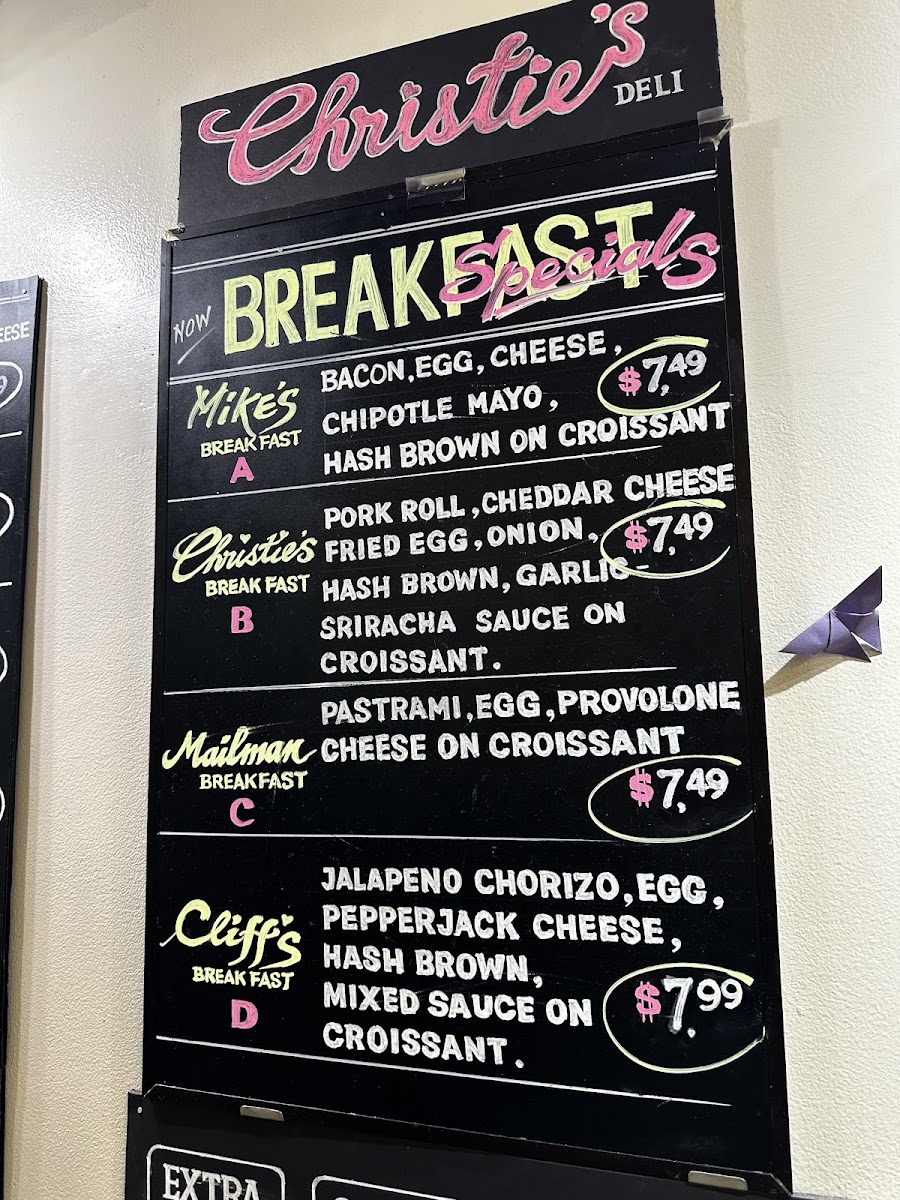 Christie's
DELI
NOW BREAKFAST
Specials
Mike's
BREAKFAST
A
BACON, EGG, CHEESE,
CHIPOTLE MAYO,
HASH BROWN ON CROISSANT
$7.49
Christie's
BREAKFAST
B
PORK ROLL, CHEDDAR CHEESE
FRIED EGG, ONION,
HASH BROWN, GARLIC-
SRIRACHA SAUCE ON
CROISSANT.
$7.49
Mailman
BREAKFAST
C
PASTRAMI, EGG, PROVOLONE
CHEESE ON CROISSANT
$7.49
Cliff's
BREAKFAST
D
JALAPENO CHORIZO, EGG,
PEPPERJACK CHEESE,
HASH BROWN,
MIXED SAUCE ON
CROISSANT.
$7.99
EXTRA